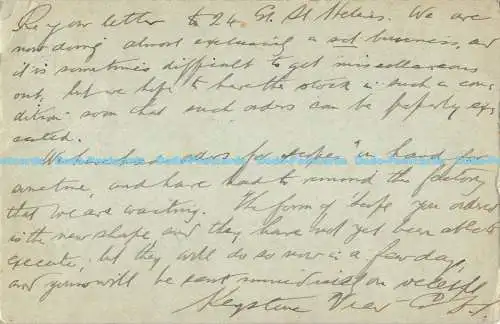 Re your letter to 24 Gt. St Helens. We are
now doing almost exclusively a set business, and
it is sometimes difficult to get miscellaneous
out, but we hope to have the stock in such a con-
dition soon that such orders can be properly exe-
cuted.
We have had orders for scopes in hand for
sometime, and have had to remind the factory
that we are waiting. The form of scope you ordered
is the new shape, and they have not yet been able to
execute; but they will do so now in a few days,
and yours will be sent immediately on receipt.
Keystone View